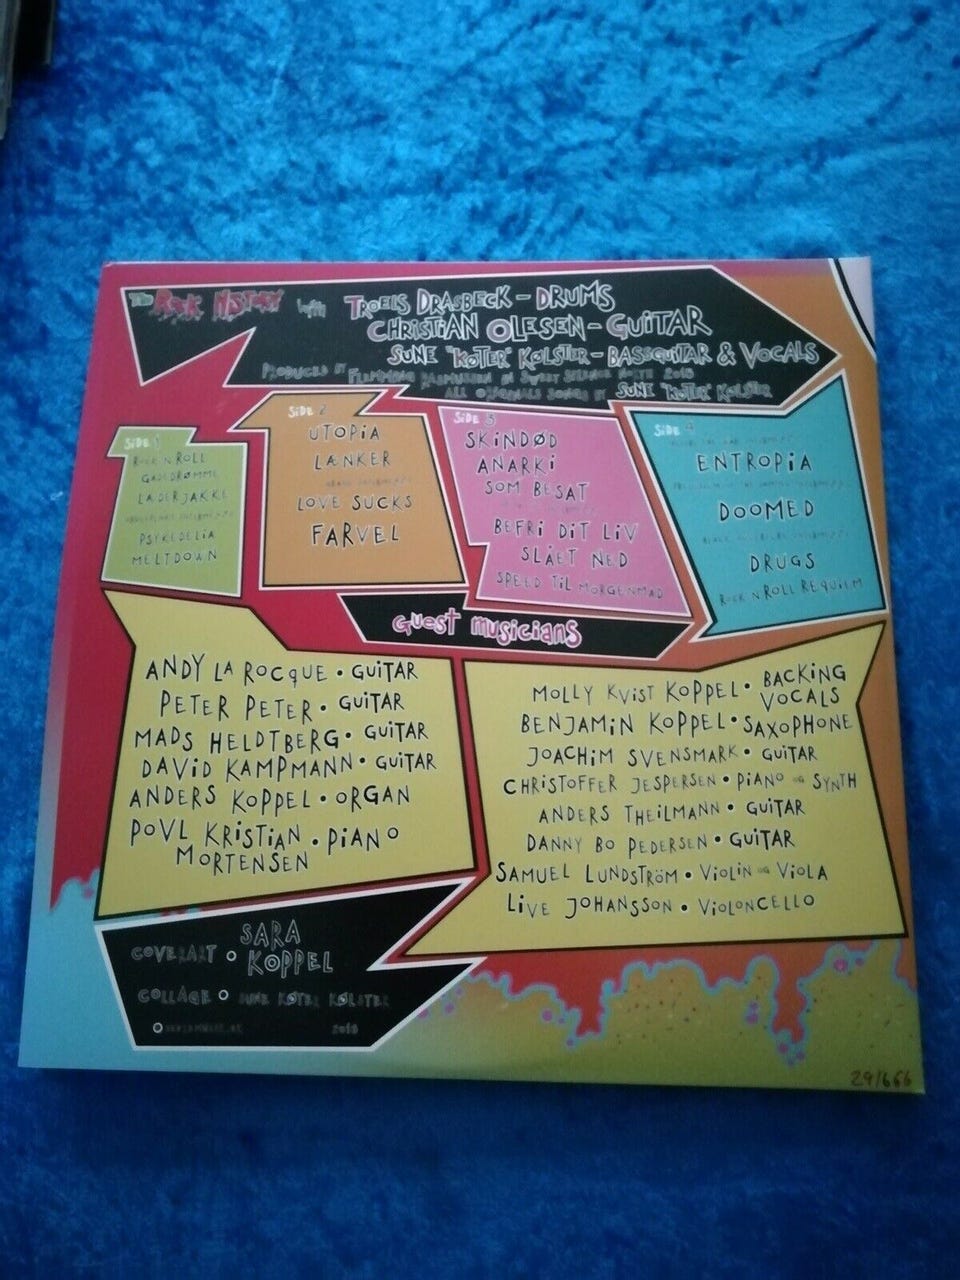 The ROCK HISTORY with TROELS DRASBECK - DRUMS
CHRISTIAN OLESEN - GUITAR
SUNE "KØTER" KØLSTER - BASSGUITAR & VOCALS
PRODUCED BY FLEMMING RASMUSSEN IN SWEET SILENCE NORTH 2018
ALL ORIGINALS SONGS BY SUNE "KØTER" KØLSTER
SIDE 1
ROCK N ROLL
GADEDRØMME
LÆDERJAKKE
PSYKEDELIA
MELTDOWN
SIDE 2
UTOPIA
LÆNKER
LOVE SUCKS
FARVEL
SIDE 3
SKINDØD
ANARKI
SOM BESAT
BEFRI DIT LIV
SLÅET NED
SPEED TIL MORGENMAD
SIDE 4
ENTROPIA
DOOMED
DRUGS
ROCK N ROLL REQUIEM
GUEST MUSICIANS
ANDY LA ROCQUE • GUITAR
PETER PETER • GUITAR
MADS HELDTBERG • GUITAR
DAVID KAMPMANN • GUITAR
ANDERS KOPPEL • ORGAN
POVL KRISTIAN • PIANO
MORTENSEN
MOLLY KVIST KOPPEL • BACKING
VOCALS
BENJAMIN KOPPEL • SAXOPHONE
JOACHIM SVENSMARK • GUITAR
CHRISTOFFER JESPERSEN • PIANO OG SYNTH
ANDERS THEILMANN • GUITAR
DANNY BO PEDERSEN • GUITAR
SAMUEL LUNDSTRÖM • VIOLIN OG VIOLA
LIVE JOHANSSON • VIOLONCELLO
COVERART O SARA
KOPPEL
COLLAGE O SUNE KØTER KØLSTER
2018
29/666